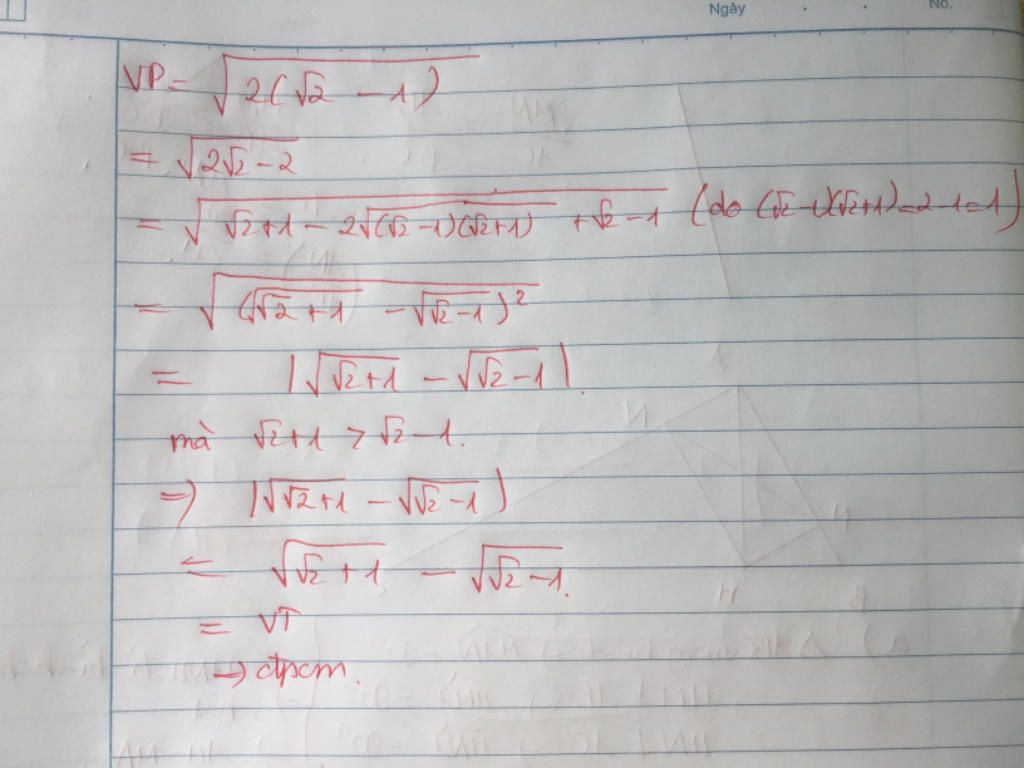 Ngày No.
VP = √(2(√2 - 1))
= √(2√2 - 2)
= √(√2+1 - 2√((√2-1)(√2+1)) + √2 - 1) (do (√2-1)(√2+1)=2-1=1)
= √((√(√2+1) - √(√2-1))²)
= |√(√2+1) - √(√2-1)|.
mà √2+1 > √2-1.
=> |√(√2+1) - √(√2-1)|
= √(√2+1) - √(√2-1).
= VT
→ đpcm.